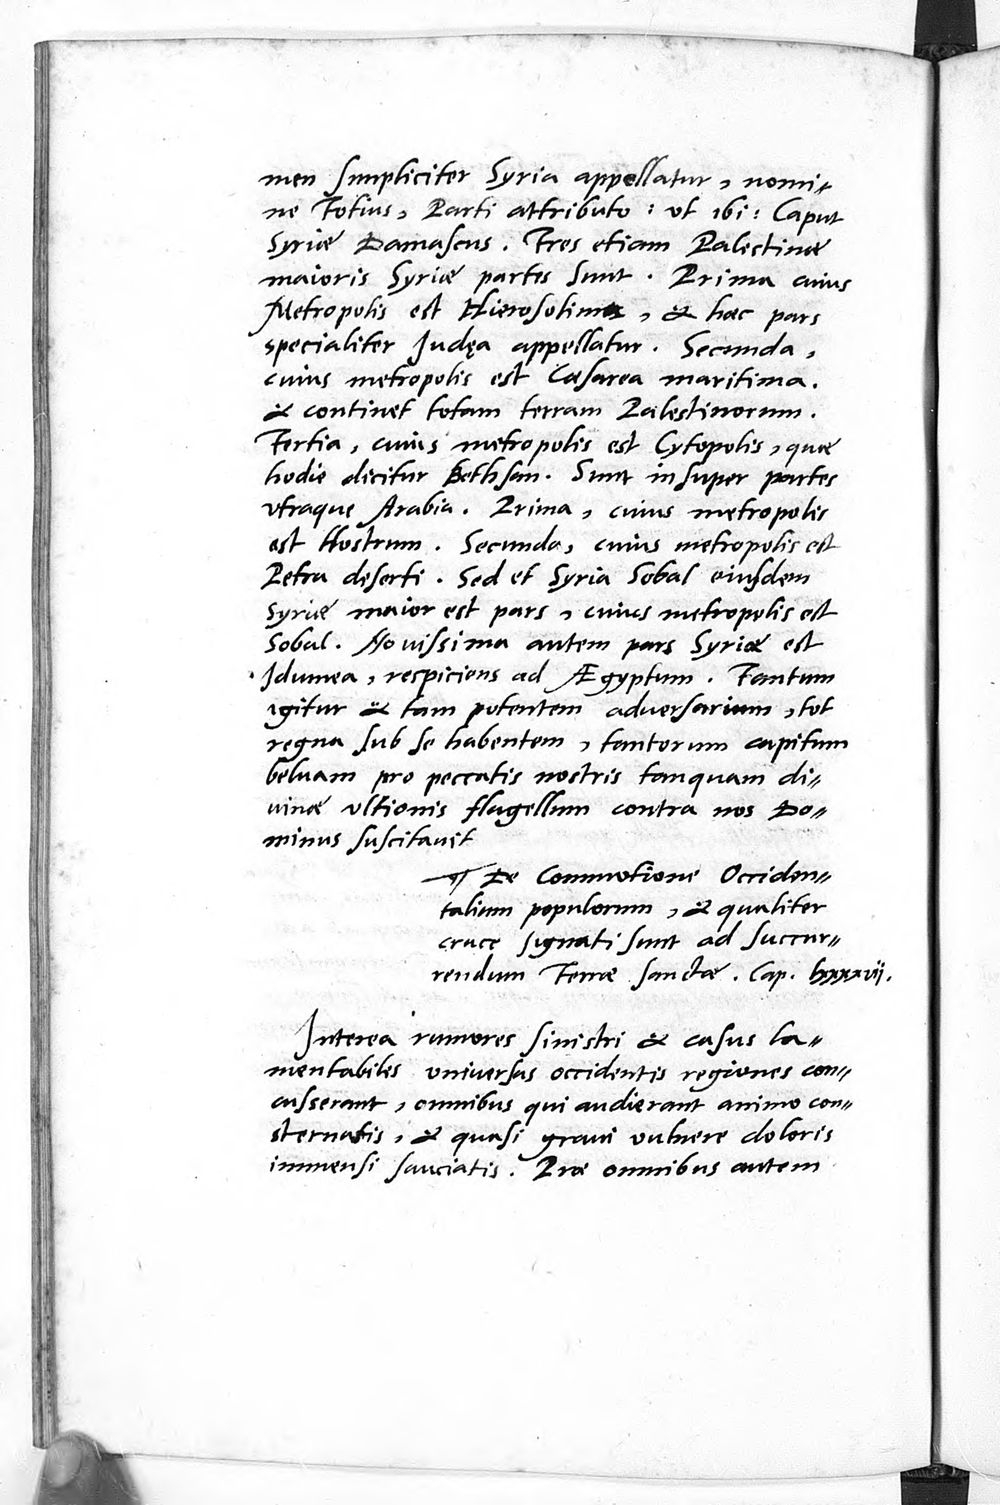 men simpliciter Syria appellatur, nomi=
ne Totius, Parti attributo: ut ibi: Caput
Syriæ Damascus. Tres etiam Palestinæ
maioris Syriæ partes sunt. Prima cuius
Metropolis est Hierosolima, & hæc pars
specialiter Iudęa appellatur. Secunda,
cuius metropolis est Cæsarea maritima.
& continet totam terram Palestinorum.
Tertia, cuius metropolis est Cytopolis, quæ
hodie dicitur Bethsan. Sunt insuper partes
vtraque Arabia. Prima, cuius metropolis
est Hostrum. Secunda, cuius metropolis est
Petra deserti. Sed et Syria Sobal eiusdem
Syriæ maior est pars, cuius metropolis est
Sobal. Novissima autem pars Syriæ est
Idumea, respiciens ad Ægyptum. Tantum
igitur & tam potentem adversarium, tot
regna sub se habentem, tantorum capitum
beluam pro peccatis nostris tanquam di=
uinæ ultionis flagellum contra nos Do=
minus suscitauit
¶ De Commotione Occiden=
talium populorum, & qualiter
cruce signati sunt ad succur=
rendum Terræ sanctæ. Cap. lxxxvij.
Interea rumores sinistri & casus la=
mentabiles universas occidentis regiones con=
cusserant, omnibus qui audierant animo con=
sternatis, & quasi graui vulnere doloris
immensi sauciatis. Præ omnibus autem